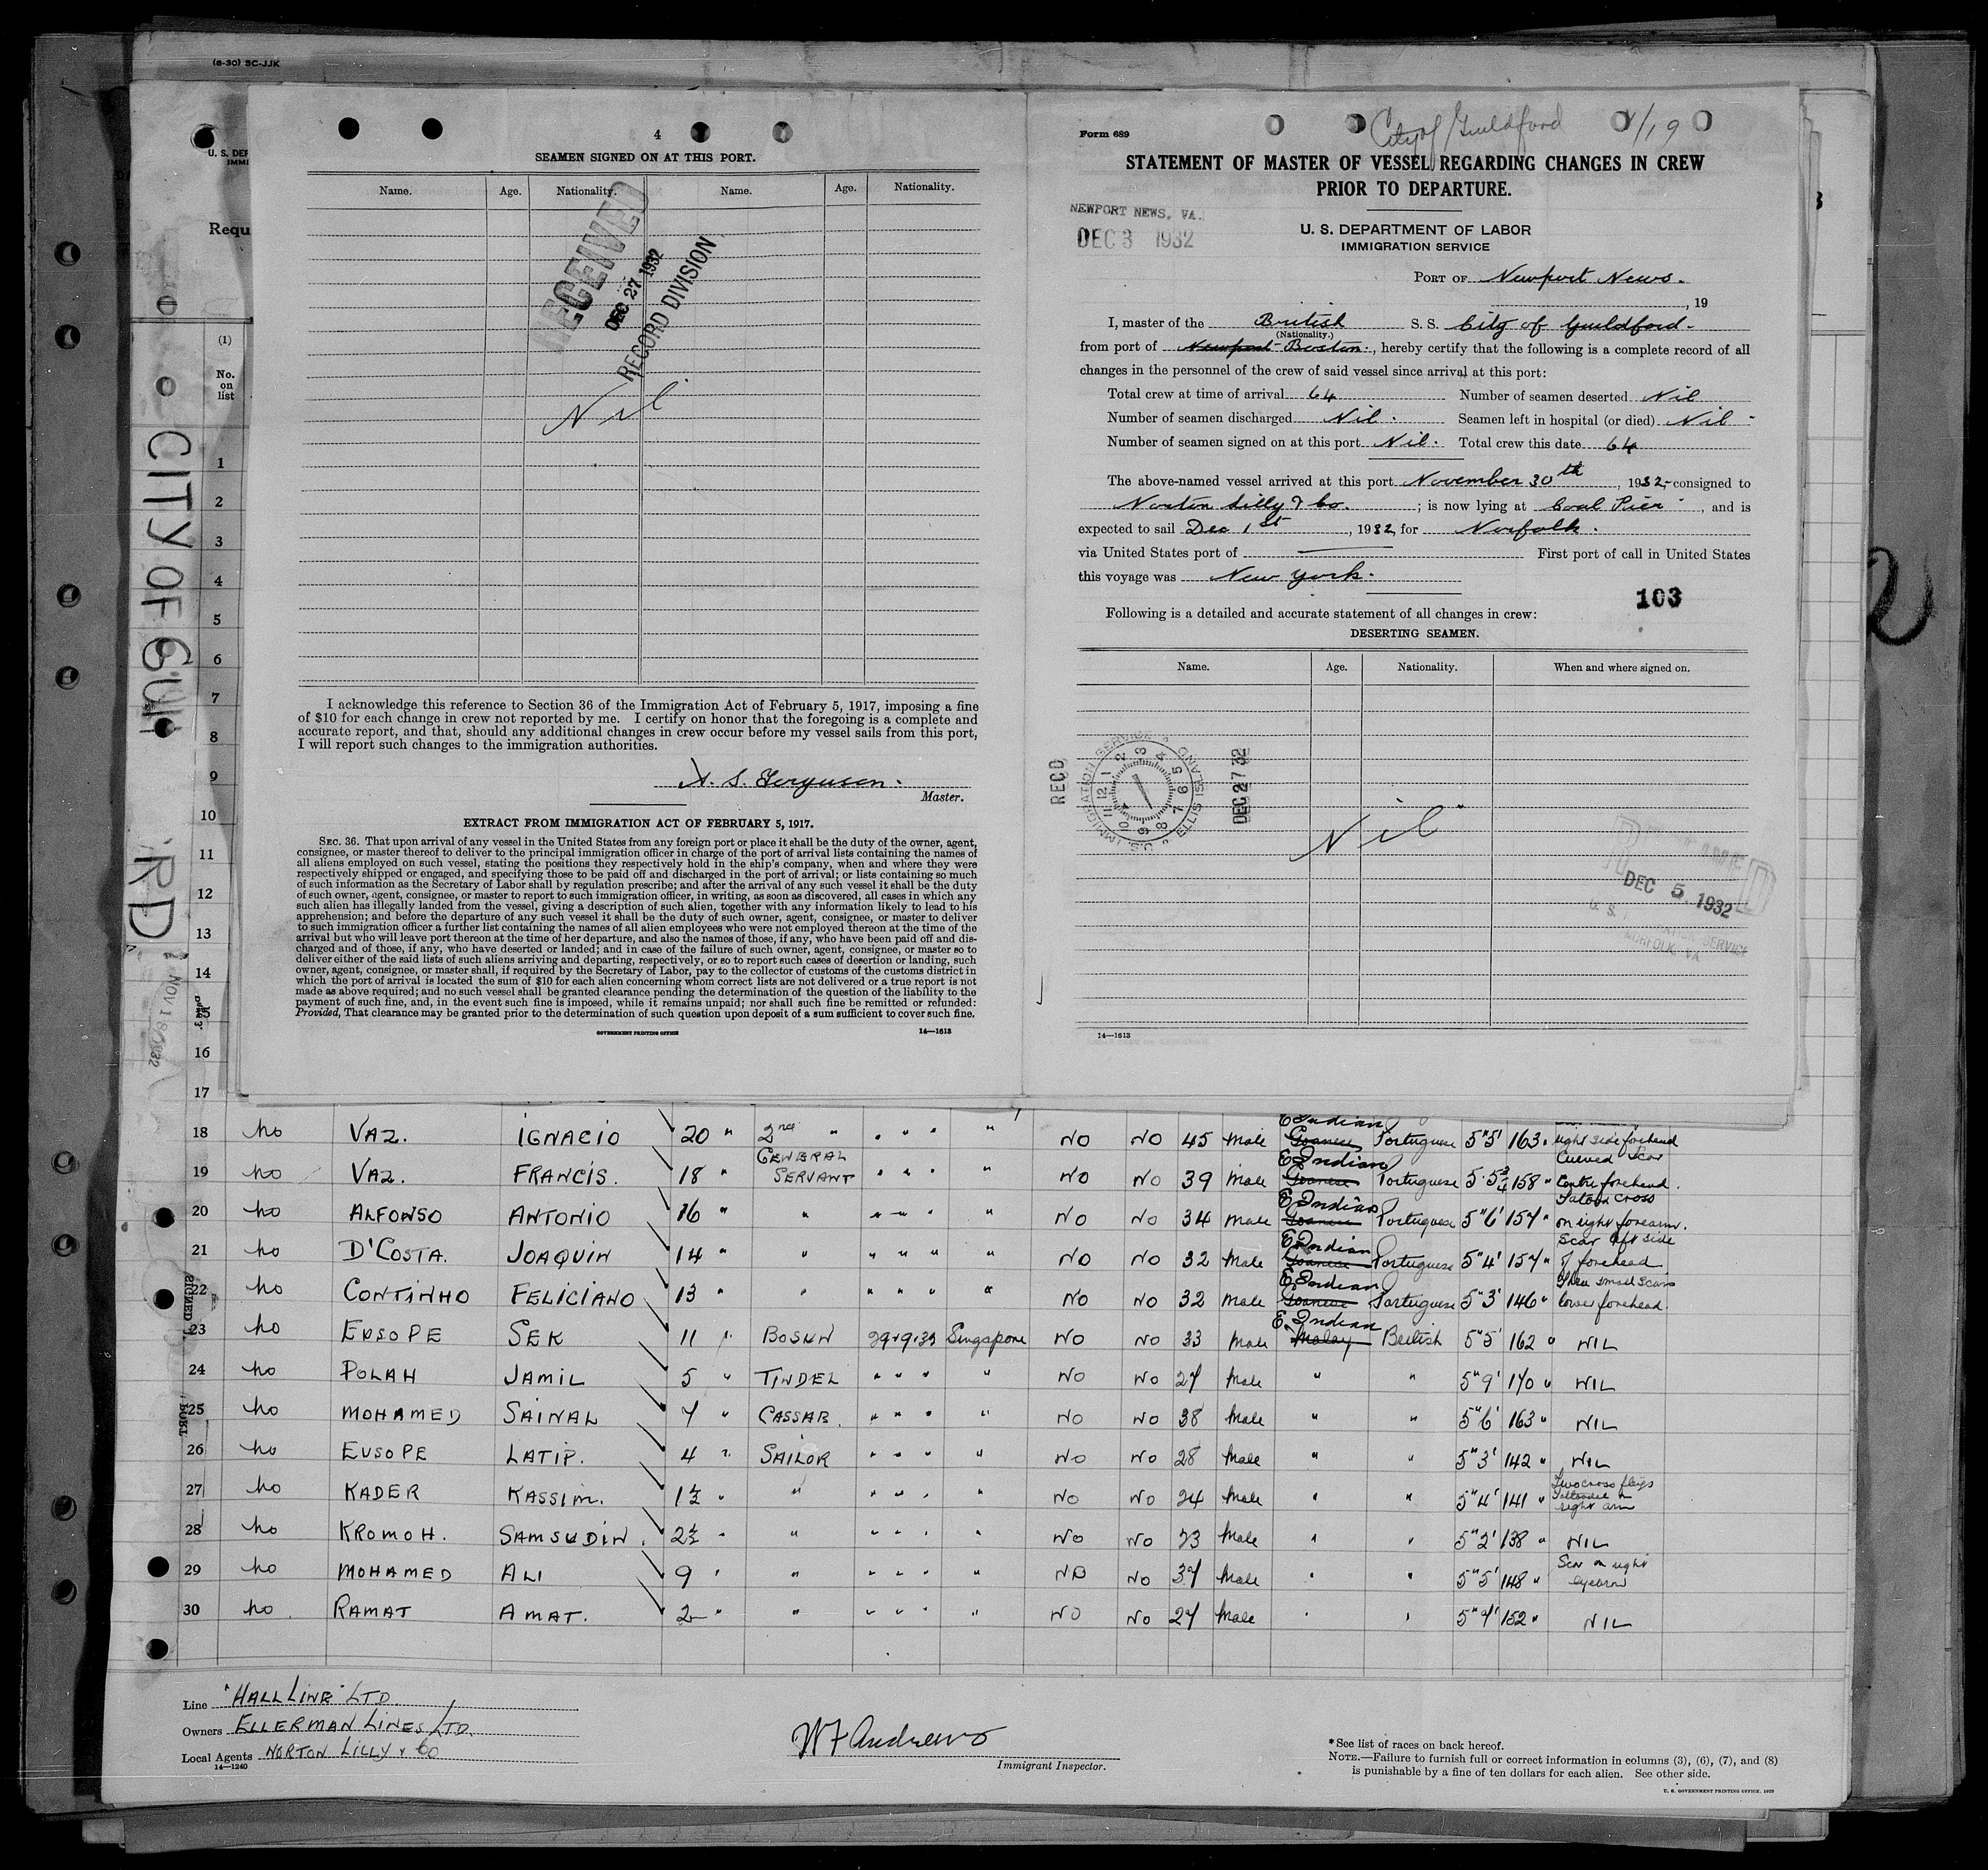 (8-30) 5C-JJK
U. S. DEP
IMMI
Requ
(1)
No.
on
list
CITY OF GUI
RD
NOV 18 1932
1
2
3
4
5
6
7
8
9
10
11
12
13
14
15
16
17
4
SEAMEN SIGNED ON AT THIS PORT.
Name. Age. Nationality. Name. Age. Nationality.
RECEIVED
DEC 27 1932
RECORD DIVISION
Nil
I acknowledge this reference to Section 36 of the Immigration Act of February 5, 1917, imposing a fine
of $10 for each change in crew not reported by me. I certify on honor that the foregoing is a complete and
accurate report, and that, should any additional changes in crew occur before my vessel sails from this port,
I will report such changes to the immigration authorities.
A. S. Ferguson.
Master.
EXTRACT FROM IMMIGRATION ACT OF FEBRUARY 5, 1917.
SEC. 36. That upon arrival of any vessel in the United States from any foreign port or place it shall be the duty of the owner, agent,
consignee, or master thereof to deliver to the principal immigration officer in charge of the port of arrival lists containing the names of
all aliens employed on such vessel, stating the positions they respectively hold in the ship's company, when and where they were
respectively shipped or engaged, and specifying those to be paid off and discharged in the port of arrival; or lists containing so much
of such information as the Secretary of Labor shall by regulation prescribe; and after the arrival of any such vessel it shall be the duty
of such owner, agent, consignee, or master to report to such immigration officer, in writing, as soon as discovered, all cases in which any
such alien has illegally landed from the vessel, giving a description of such alien, together with any information likely to lead to his
apprehension; and before the departure of any such vessel it shall be the duty of such owner, agent, consignee, or master to deliver
to such immigration officer a further list containing the names of all alien employees who were not employed thereon at the time of the
arrival but who will leave port thereon at the time of her departure, and also the names of those, if any, who have been paid off and dis-
charged and of those, if any, who have deserted or landed; and in case of the failure of such owner, agent, consignee, or master so to
deliver either of the said lists of such aliens arriving and departing, respectively, or so to report such cases of desertion or landing, such
owner, agent, consignee, or master shall, if required by the Secretary of Labor, pay to the collector of customs of the customs district in
which the port of arrival is located the sum of $10 for each alien concerning whom correct lists are not delivered or a true report is not
made as above required; and no such vessel shall be granted clearance pending the determination of the question of the liability to the
payment of such fine, and, in the event such fine is imposed, while it remains unpaid; nor shall such fine be remitted or refunded:
Provided, That clearance may be granted prior to the determination of such question upon deposit of a sum sufficient to cover such fine.
GOVERNMENT PRINTING OFFICE 14—1613
Form 689
City of Guildford 1/19
STATEMENT OF MASTER OF VESSEL REGARDING CHANGES IN CREW
PRIOR TO DEPARTURE.
NEWPORT NEWS, VA.
DEC 3 1932
U. S. DEPARTMENT OF LABOR
IMMIGRATION SERVICE
PORT OF Newport News.
, 19
I, master of the British S. S. City of Guildford.
(Nationality.)
from port of Newport - Boston., hereby certify that the following is a complete record of all
changes in the personnel of the crew of said vessel since arrival at this port:
Total crew at time of arrival 64 Number of seamen deserted Nil
Number of seamen discharged Nil. Seamen left in hospital (or died) Nil
Number of seamen signed on at this port Nil. Total crew this date 64
The above-named vessel arrived at this port November 30th, 1932, consigned to
Norton Lilly & Co. ; is now lying at Coal Pier, and is
expected to sail Dec 1st, 1932, for Norfolk.
via United States port of — First port of call in United States
this voyage was New York.
103
Following is a detailed and accurate statement of all changes in crew:
DESERTING SEAMEN.
Name. Age. Nationality. When and where signed on.
RECD
U.S. IMMIGRATION SERVICE ELLIS ISLAND
DEC 27 32
Nil
DEC 5 1932
NORFOLK, VA
14—1613
18 no VAZ. IGNACIO 20 " 2nd " " " " " NO NO 45 Male E Indian Goanese Portuguese 5"5' 163 " right side forehead
19 no VAZ. FRANCIS. 18 " GENERAL SERVANT " " " " NO NO 39 Male E Indian Goanese Portuguese 5"5¾ 158 " Curved Scar Centre forehead.
20 no ALFONSO ANTONIO 16 " " " " " " NO NO 34 Male E Indian Goanese Portuguese 5"6' 157 " Tattoo Cross on right forearm.
21 no D'COSTA. JOAQUIN 14 " " " " " " NO NO 32 Male E Indian Goanese Portuguese 5"4' 157 " Scar left side of forehead
22 no CONTINHO FELICIANO 13 " " " " " " NO NO 32 Male E Indian Goanese Portuguese 5"3' 146 " Three small scars lower forehead.
23 no EUSOPE SEK 11 " BOSUN 29.9.32 Singapore NO NO 33 Male E. Indian Malay British 5"5' 162 " NIL
24 no POLAH JAMIL 5 " TINDEL " " " " NO NO 27 Male " " 5"9' 170 " NIL
25 no MOHAMED SAINAL 7 " CASSAB. " " " " NO NO 38 Male " " 5"6' 163 " NIL
26 no EUSOPE LATIP. 4 " SAILOR " " " " NO NO 28 Male " " 5"3' 142 " NIL
27 no KADER KASSIM. 1½ " " " " " " NO NO 24 Male " " 5"4' 141 " Two cross flags Tattooed on right arm
28 no KROMOH. SAMSUDIN. 2½ " " " " " " NO NO 23 Male " " 5"2' 138 " NIL
29 no MOHAMED ALI 9 " " " " " " NO NO 37 Male " " 5"5' 148 " Scar on right eyebrow
30 no RAMAT AMAT. 2 " " " " " " NO NO 27 Male " " 5"7' 152 " NIL
Line "HALL LINE" LTD.
Owners ELLERMAN LINES LTD.
Local Agents NORTON LILLY & Co
14—1240
WF Andrews
Immigrant Inspector.
* See list of races on back hereof.
NOTE.—Failure to furnish full or correct information in columns (3), (6), (7), and (8)
is punishable by a fine of ten dollars for each alien. See other side.
U. S. GOVERNMENT PRINTING OFFICE. 1929